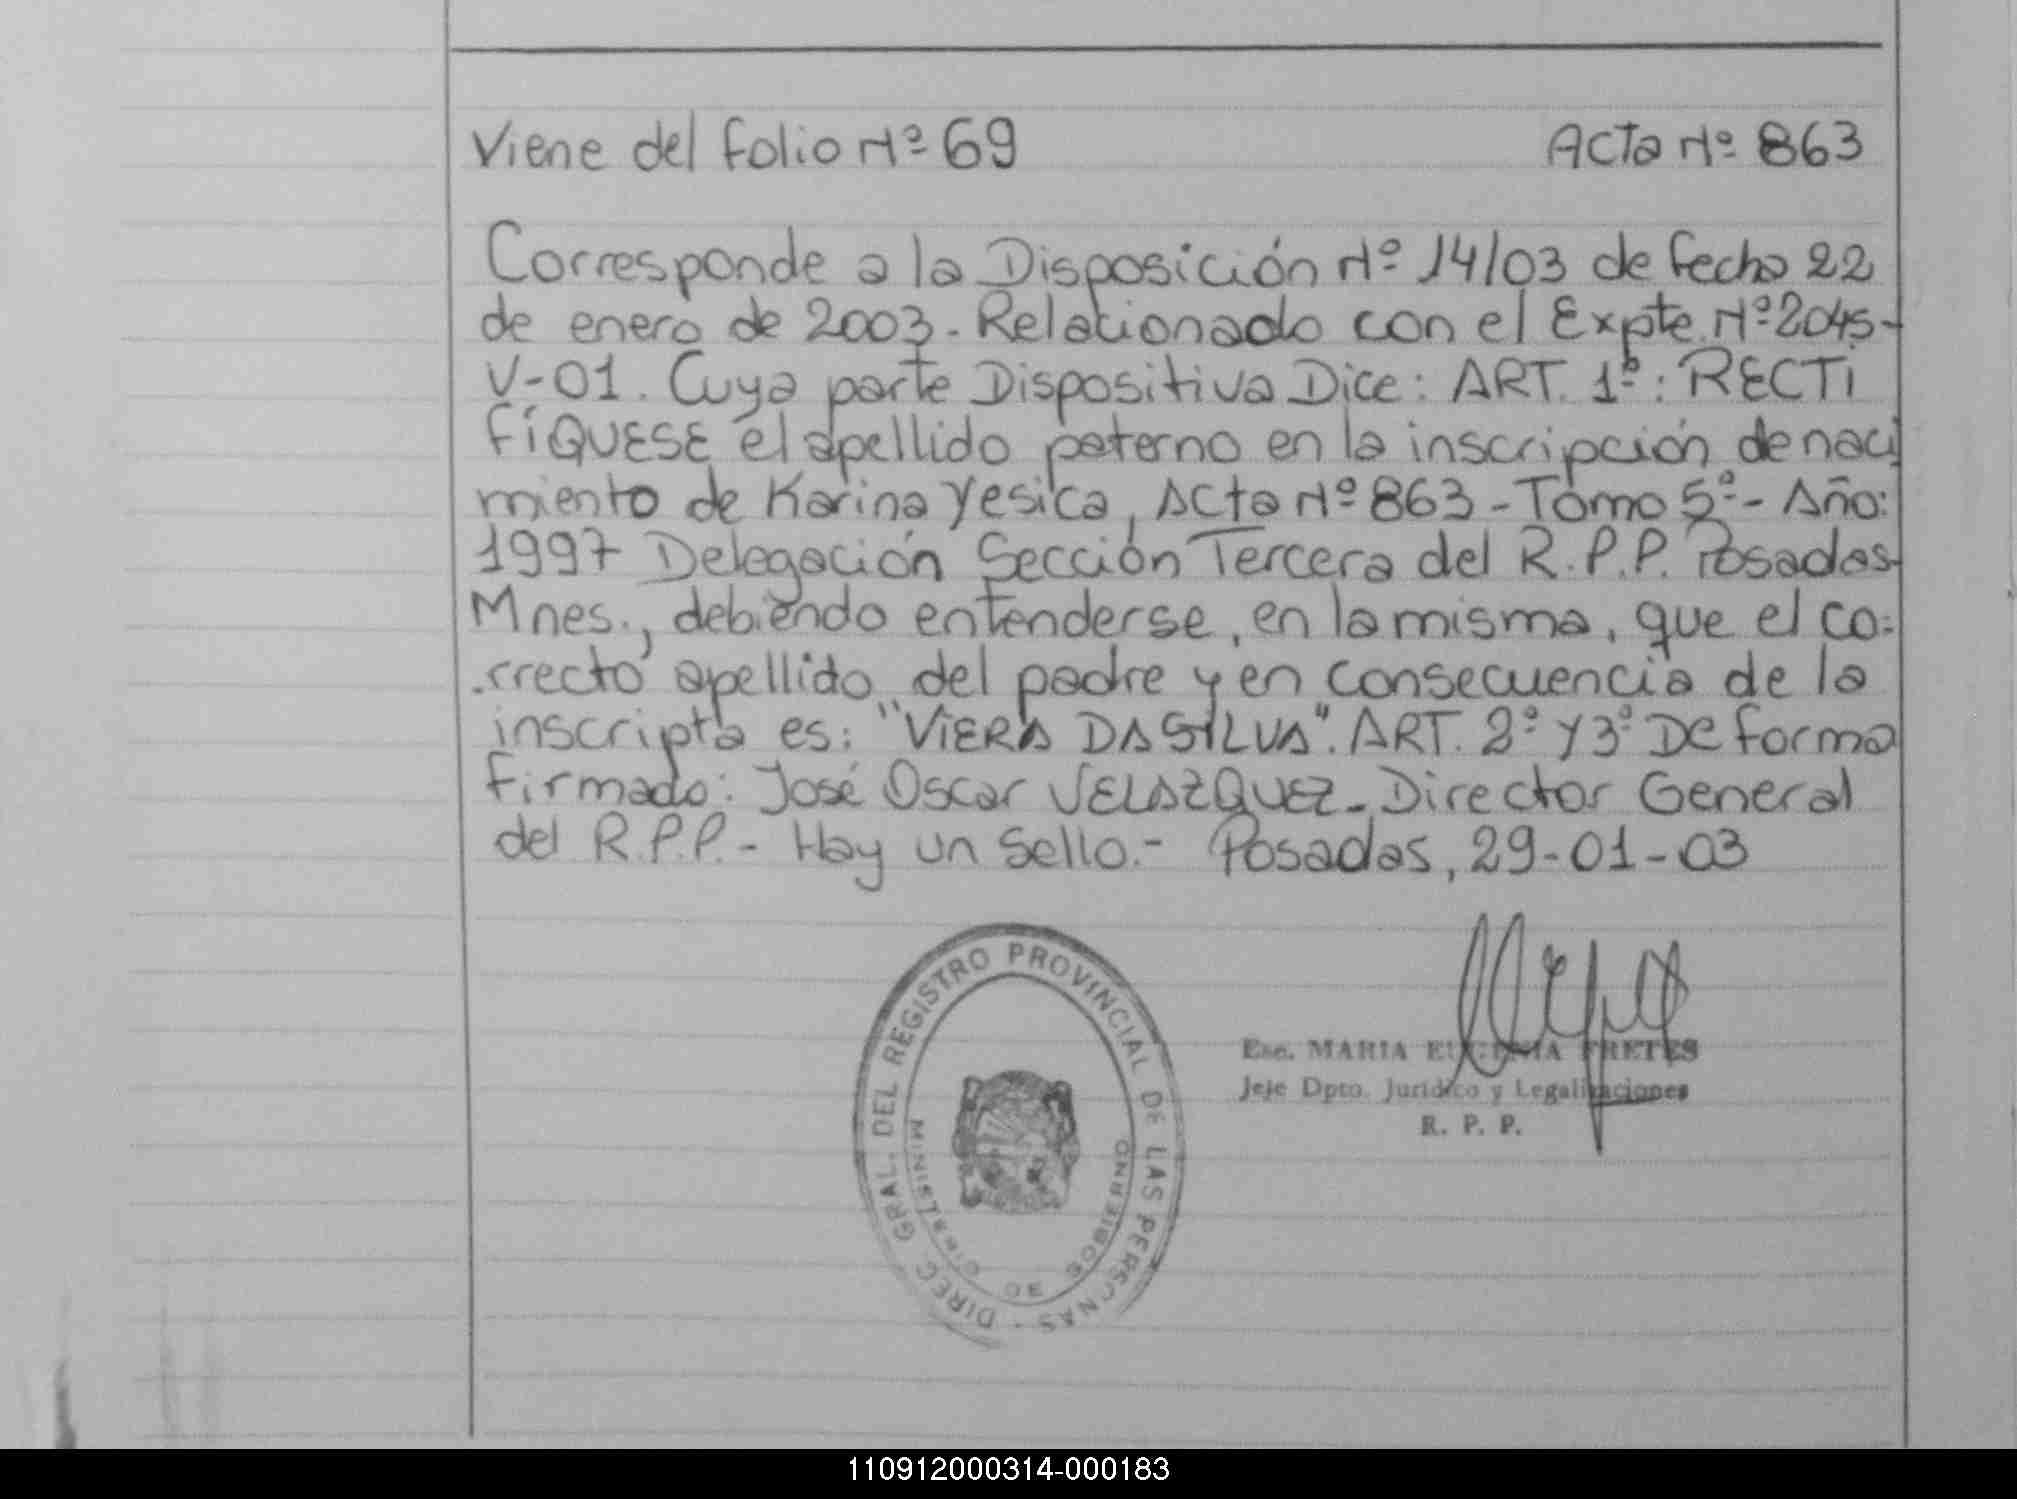 Viene del folio Nº 69 Acta Nº 863
Corresponde a la Disposición Nº 14/03 de fecha 22
de enero de 2003.- Relacionado con el Expte. Nº 2045-
V-01. Cuya parte Dispositiva Dice: ART. 1º: RECTI
FÍQUESE el apellido paterno en la inscripción de naci
miento de Karina Yesica, Acta Nº 863 - Tomo 5º - Año:
1997 Delegación Sección Tercera del R.P.P. Posadas-
Mnes., debiendo entenderse, en la misma, que el co-
rrecto apellido del padre y en consecuencia de la
inscripta es: "VIERA DA SILVA". ART. 2º y 3º De forma
firmado: José Oscar VELAZQUEZ - Director General
del R.P.P. - Hay un Sello.- Posadas, 29-01-03
DIREC. GRAL. DEL REGISTRO PROVINCIAL DE LAS PERSONAS
MINISTERIO DE GOBIERNO
Esc. MARIA EUGENIA FRETES
Jeje Dpto. Jurídico y Legalizaciones
R. P. P.
110912000314-000183